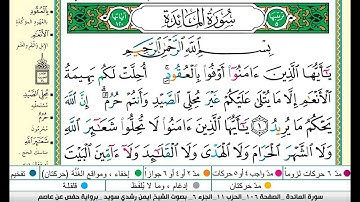 سُورَةُ المَائِدَةِ
بِسْمِ ٱللَّهِ ٱلرَّحْمَٰنِ ٱلرَّحِيمِ
يَٰٓأَيُّهَا ٱلَّذِينَ ءَامَنُوٓا۟ أَوْفُوا۟ بِٱلْعُقُودِ ۚ أُحِلَّتْ لَكُم بَهِيمَةُ
ٱلْأَنْعَٰمِ إِلَّا مَا يُتْلَىٰ عَلَيْكُمْ غَيْرَ مُحِلِّى ٱلصَّيْدِ وَأَنتُمْ حُرُمٌ ۗ إِنَّ ٱللَّهَ
يَحْكُمُ مَا يُرِيدُ ١ يَٰٓأَيُّهَا ٱلَّذِينَ ءَامَنُوا۟ لَا تُحِلُّوا۟ شَعَٰٓئِرَ ٱللَّهِ
وَلَا ٱلشَّهْرَ ٱلْحَرَامَ وَلَا ٱلْهَدْىَ وَلَا ٱلْقَلَٰٓئِدَ وَلَآ ءَآمِّينَ ٱلْبَيْتَ
مدّ ٦ حركات لزوماً مدّ ٢ أو ٤ أو ٦ جوازاً إخفاء، ومواقع الغنّة (حركتان) تفخيم
مدّ حركتان إدغام، وما لا يُلفظ قلقلة
سورة المائدة _ الصفحة ١٠٦ _ الحزب ١١ _ الجزء ٦ _ بصوت الشيخ ايمن رشدي سويد _ برواية حفص عن عاصم